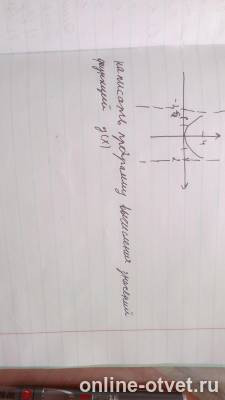 написать программу вычисления значений
функций y(x)
online-otvet.ru